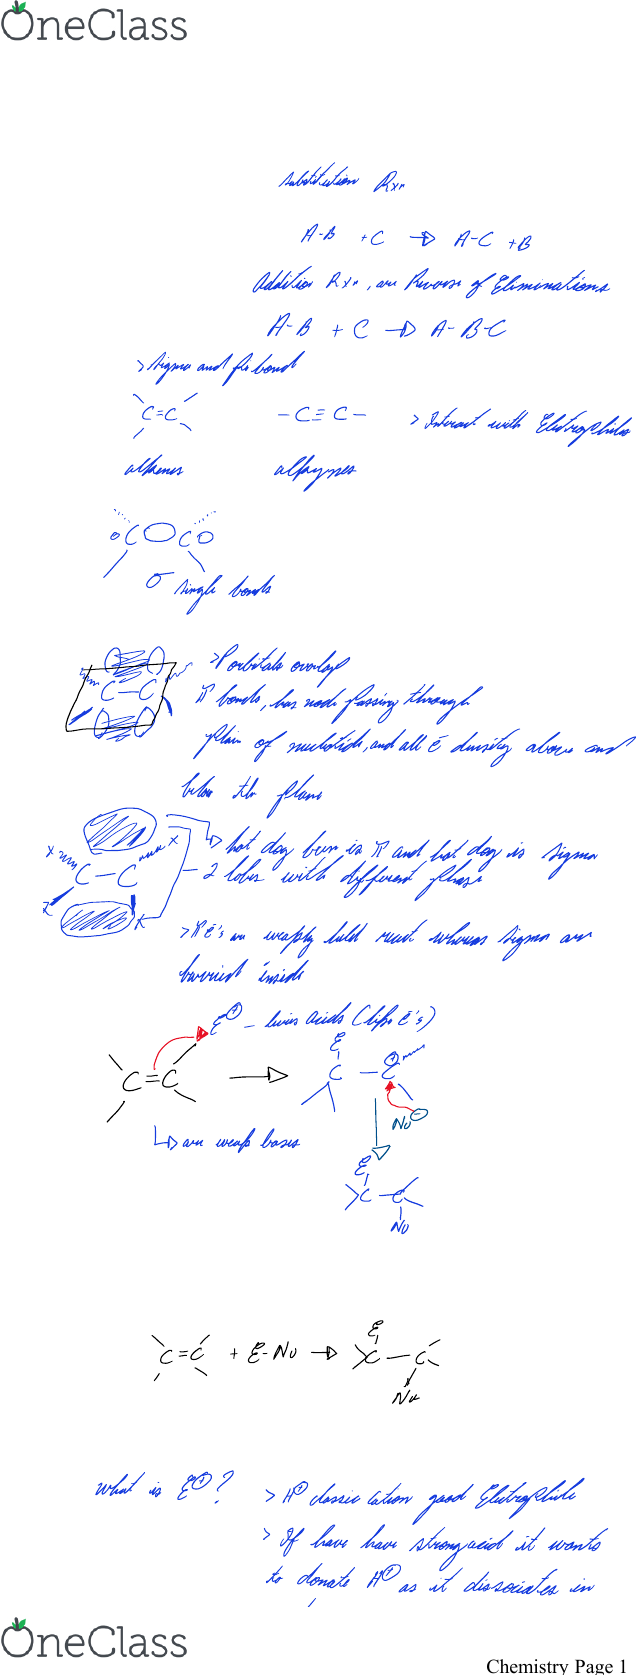 OneClass
substitution Rxn
A-B + C → A-C + B
Addition Rxn, are Reverse of Eliminations
A-B + C → A-B-C
> sigma and pi bond
C=C
-C≡C-
> Interact with Electrophiles
alkenes
alkynes
C C
σ single bonds
> P orbitals overlap
C-C
π bonds, has node passing through
plain of nucleotide, and all ē density above and
below the plane
hot dog bun is π and hot dog is sigma
x x
C-C
- 2 lobes with different phase
> π ē's are weakly held react whereas sigma are
burried inside
E⊕ - lewis acids (like ē's)
E
C=C → C - C⊕
Nu⊖
↳ are weak bases
E
C - C
Nu
E
C=C + E-Nu → C - C
Nu
what is E⊕?
> H⊕ classic cation good Electrophile
> If have have strong acid it wants
to donate H⊕ as it dissociates in
OneClass
Chemistry Page 1